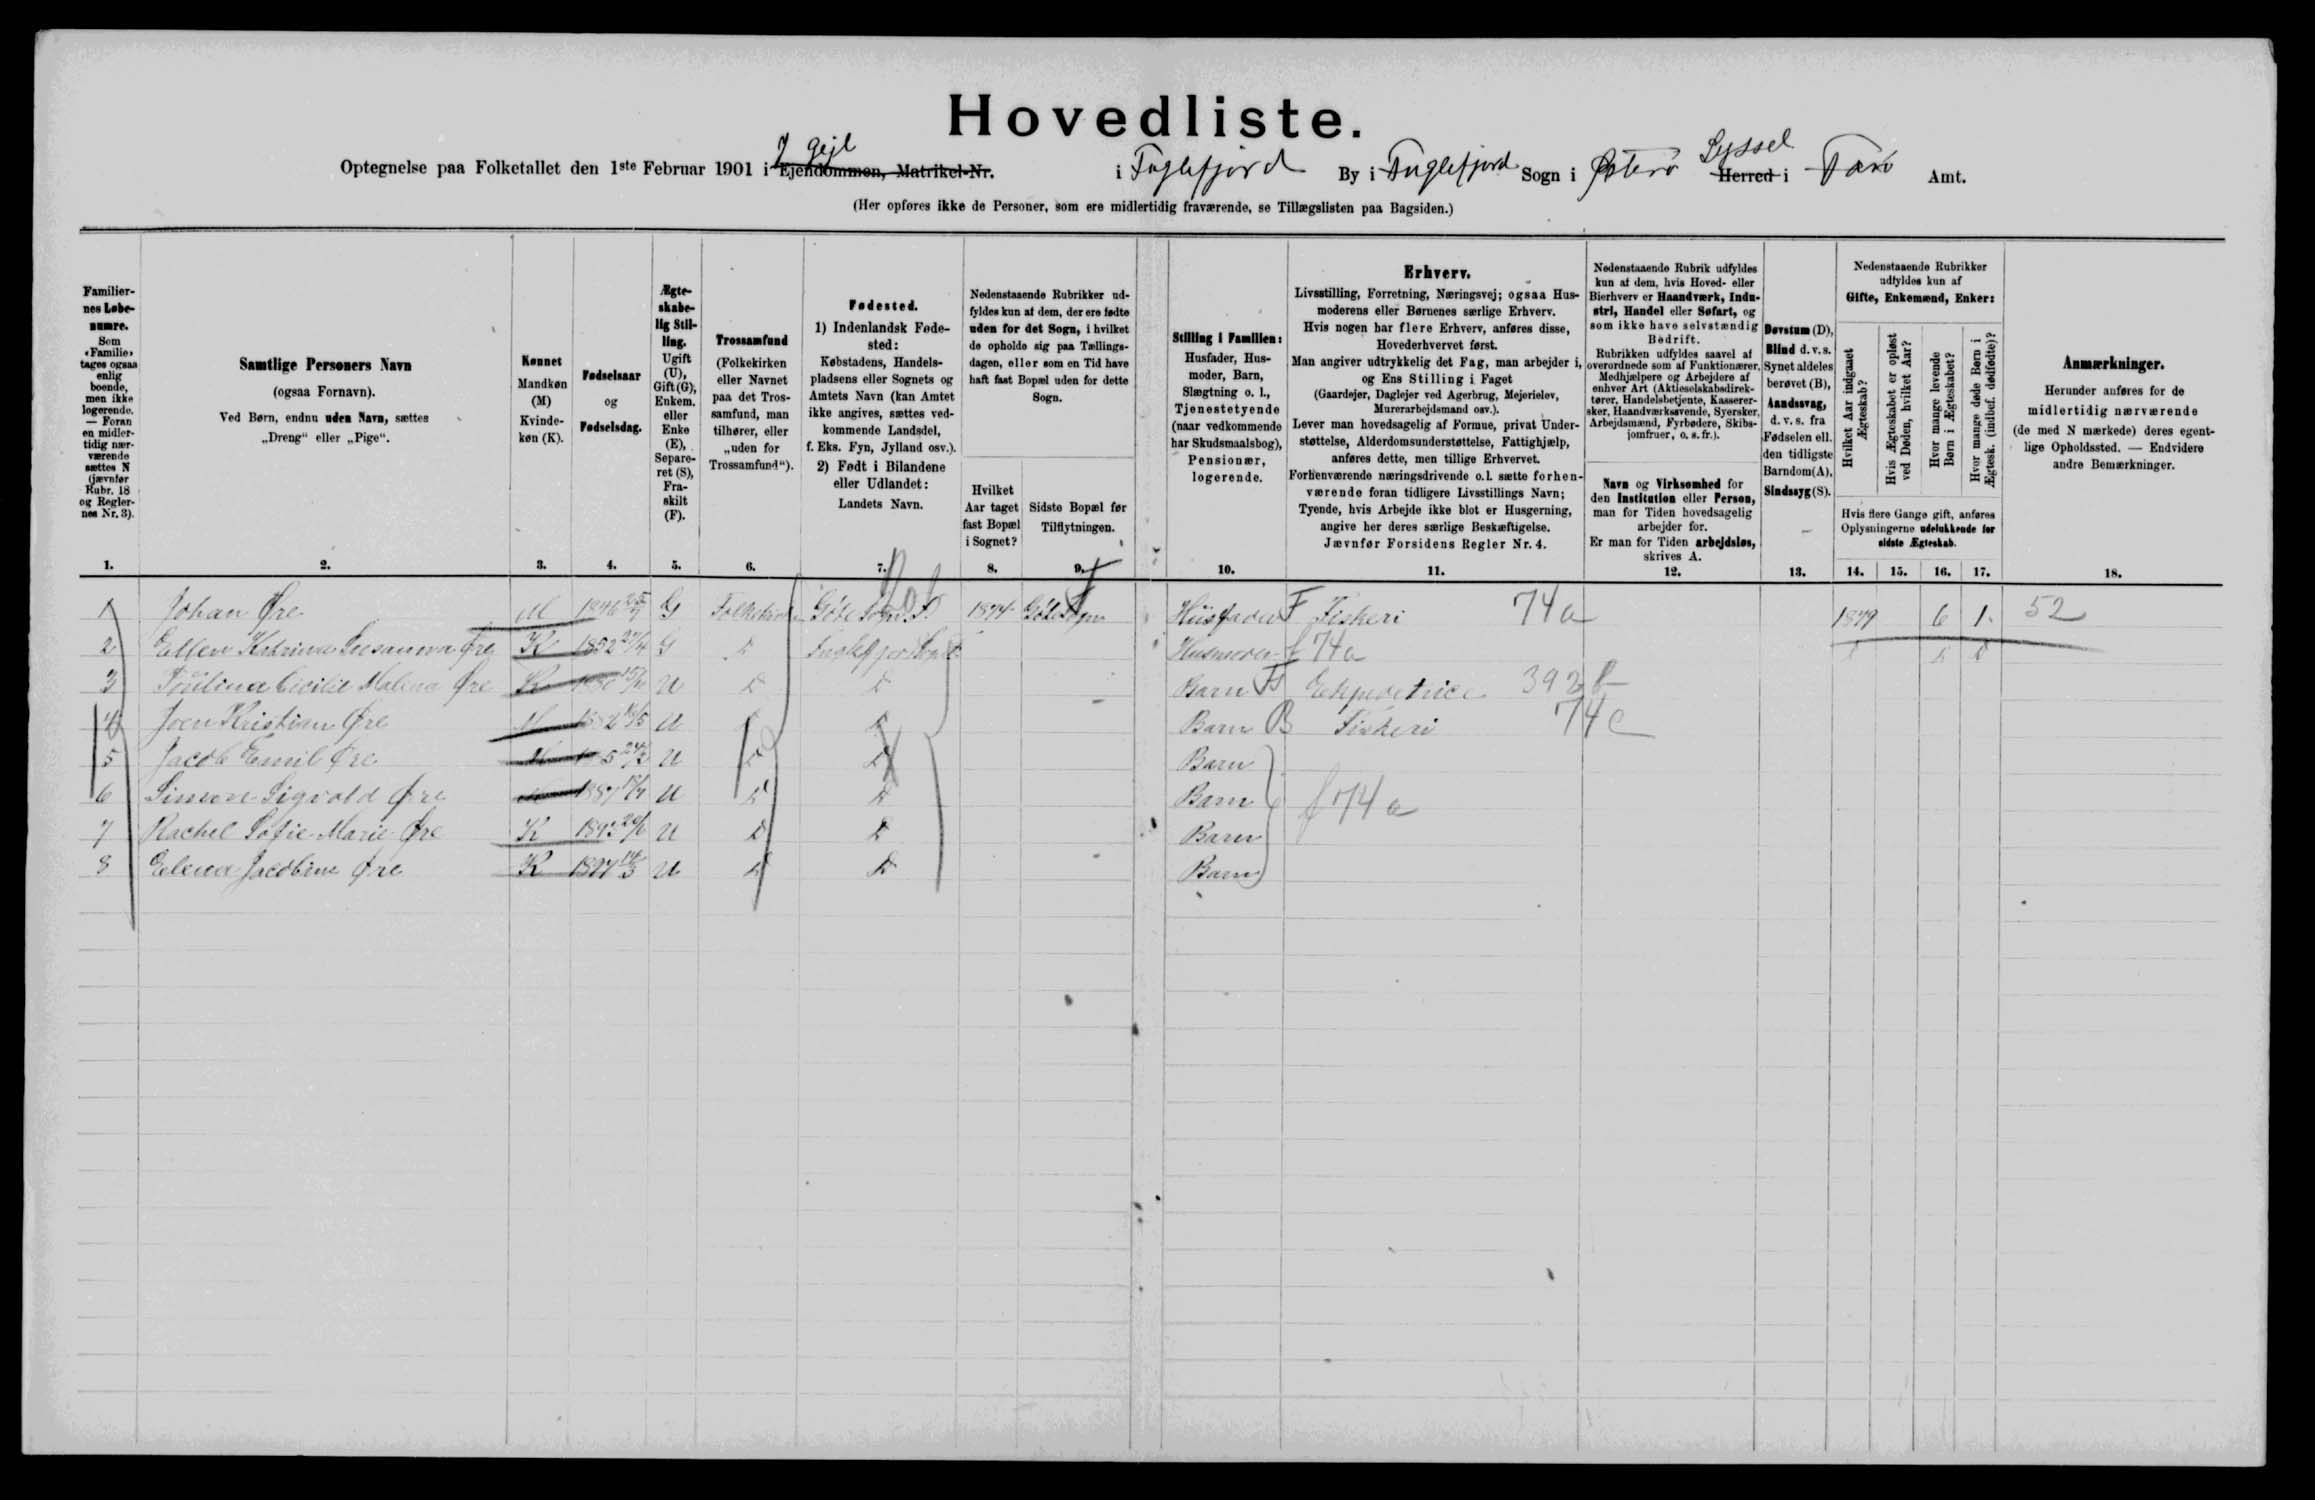 Hovedliste.
I Gejl
Optegnelse paa Folketallet den 1ste Februar 1901 i Ejendommen, Matrikel-Nr. i Fuglefjord By i Fuglefjord Sogn i Østerø Syssel Herred i Færø Amt.
(Her opføres ikke de Personer, som ere midlertidig fraværende, se Tillægslisten paa Bagsiden.)
Familiernes Løbenumre.
Som «Familie» tages ogsaa enlig boende, men ikke logerende. — Foran en midlertidig nærværende sættes N (jævnfør Rubr. 18 og Reglernes Nr. 3).
1.
Samtlige Personers Navn
(ogsaa Fornavn).
Ved Børn, endnu uden Navn, sættes
„Dreng“ eller „Pige“.
2.
Kønnet
Mandkøn (M)
Kvindekøn (K).
3.
Fødselsaar
og
Fødselsdag.
4.
Ægteskabelig Stilling.
Ugift (U), Gift (G), Enkem. eller Enke (E), Separeret (S), Fraskilt (F).
5.
Trossamfund
(Folkekirken eller Navnet paa det Trossamfund, man tilhører, eller „uden for Trossamfund“).
6.
Fødested.
1) Indenlandsk Fødested:
Købstadens, Handelspladsens eller Sognets og Amtets Navn (kan Amtet ikke angives, sættes vedkommende Landsdel, f. Eks. Fyn, Jylland osv.).
2) Født i Bilandene eller Udlandet:
Landets Navn.
7.
Nedenstaaende Rubrikker udfyldes kun af dem, der ere fødte uden for det Sogn, i hvilket de opholde sig paa Tællingsdagen, eller som en Tid have haft fast Bopæl uden for dette Sogn.
Hvilket Aar taget fast Bopæl i Sognet?
8.
Sidste Bopæl før Tilflytningen.
9.
Stilling i Familien:
Husfader, Husmoder, Barn, Slægtning o. l., Tjenestetyende (naar vedkommende har Skudsmaalsbog), Pensionær, logerende.
10.
Erhverv.
Livsstilling, Forretning, Næringsvej; ogsaa Husmoderens eller Børnenes særlige Erhverv.
Hvis nogen har flere Erhverv, anføres disse, Hovederhvervet først.
Man angiver udtrykkelig det Fag, man arbejder i, og Ens Stilling i Faget
(Gaardejer, Daglejer ved Agerbrug, Mejerielev, Murerarbejdsmand osv.).
Lever man hovedsagelig af Formue, privat Understøttelse, Alderdomsunderstøttelse, Fattighjælp, anføres dette, men tillige Erhvervet.
Forhenværende næringsdrivende o. l. sætte forhenværende foran tidligere Livsstillings Navn;
Tyende, hvis Arbejde ikke blot er Husgerning, angive her deres særlige Beskæftigelse.
Jævnfør Forsidens Regler Nr. 4.
11.
Nedenstaaende Rubrik udfyldes kun af dem, hvis Hoved- eller Bierhverv er Haandværk, Industri, Handel eller Søfart, og som ikke have selvstændig Bedrift.
Rubrikken udfyldes saavel af overordnede som af Funktionærer, Medhjælpere og Arbejdere af enhver Art (Aktieselskabsdirektører, Handelsbetjente, Kasserersker, Haandværkssvende, Syersker, Arbejdsmænd, Fyrbødere, Skibsjomfruer, o. s. fr.).
Navn og Virksomhed for den Institution eller Person, man for Tiden hovedsagelig arbejder for.
Er man for Tiden arbejdsløs, skrives A.
12.
Døvstum (D), Blind d. v. s. Synet aldeles berøvet (B), Aandssvag, d. v. s. fra Fødselen ell. den tidligste Barndom (A), Sindssyg (S).
13.
Nedenstaaende Rubrikker udfyldes kun af
Gifte, Enkemænd, Enker:
Hvilket Aar indgaaet Ægteskab?
Hvis Ægteskabet er opløst ved Døden, hvilket Aar?
Hvor mange levende Børn i Ægteskabet?
Hvor mange døde Børn i Ægtesk. (indbef. dødfødte)?
Hvis flere Gange gift, anføres Oplysningerne udelukkende for sidste Ægteskab.
14. 15. 16. 17.
Anmærkninger.
Herunder anføres for de midlertidig nærværende (de med N mærkede) deres egentlige Opholdssted. — Endvidere andre Bemærkninger.
18.
1 Johan Øre M 1846 G Folkekirken Göte Sogn F. 1874 Göte Sogn Husfader F Fiskeri 74a 1879 6 1. 52
2 Ellen Katrina Susanna Øre K 1852 27/4 G Fuglefjord Sogn F Husmoder f 74a
3 Poulina Cicilie Malena Øre K 1880 U Barn Expedetrice 392
4 Joen Kristian Øre M 1882 U Barn B Fiskeri 74c
5 Jacob Emil Øre M U Barn
6 Simon Sigvald Øre M 1887 U Barn f 74a
7 Rachel Sofie Marie Øre K U Barn
8 Elena Jacobine Øre K 1897 14/3 U Barn